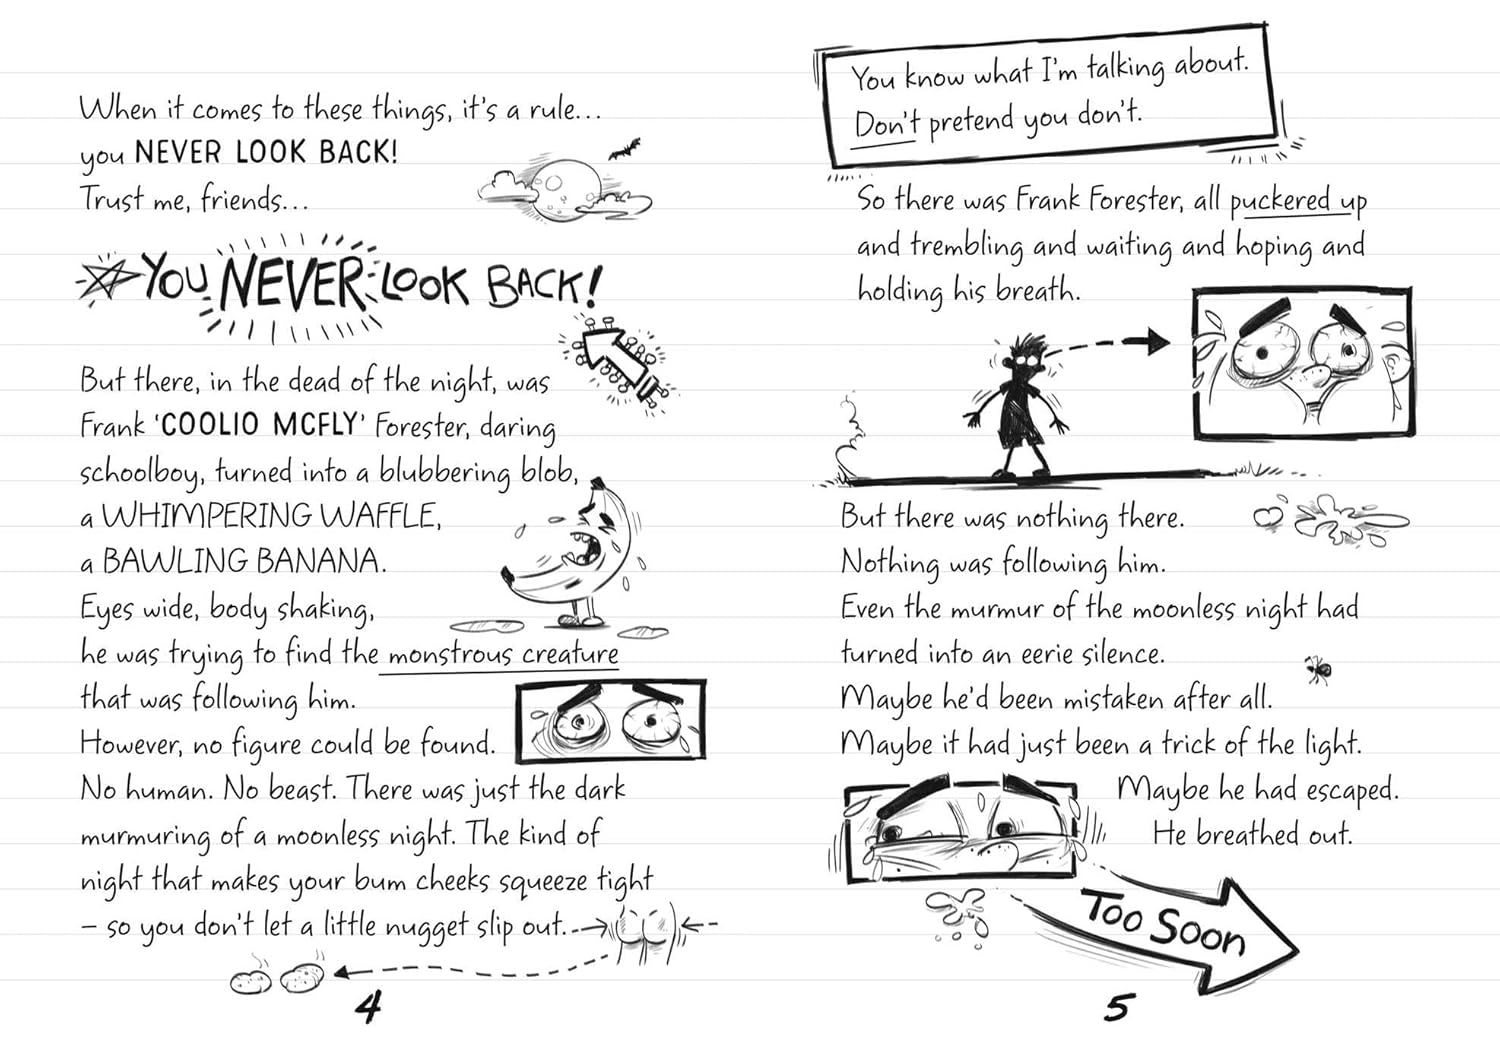 When it comes to these things, it's a rule...
you NEVER LOOK BACK!
Trust me, friends...
YOU NEVER LOOK BACK!
But there, in the dead of the night, was
Frank 'COOLIO MCFLY' Forester, daring
schoolboy, turned into a blubbering blob,
a WHIMPERING WAFFLE,
a BAWLING BANANA.
Eyes wide, body shaking,
he was trying to find the monstrous creature
that was following him.
However, no figure could be found.
No human. No beast. There was just the dark
murmuring of a moonless night. The kind of
night that makes your bum cheeks squeeze tight
– so you don't let a little nugget slip out.
4
You know what I'm talking about.
Don't pretend you don't.
So there was Frank Forester, all puckered up
and trembling and waiting and hoping and
holding his breath.
But there was nothing there.
Nothing was following him.
Even the murmur of the moonless night had
turned into an eerie silence.
Maybe he'd been mistaken after all.
Maybe it had just been a trick of the light.
Maybe he had escaped.
He breathed out.
Too Soon
5